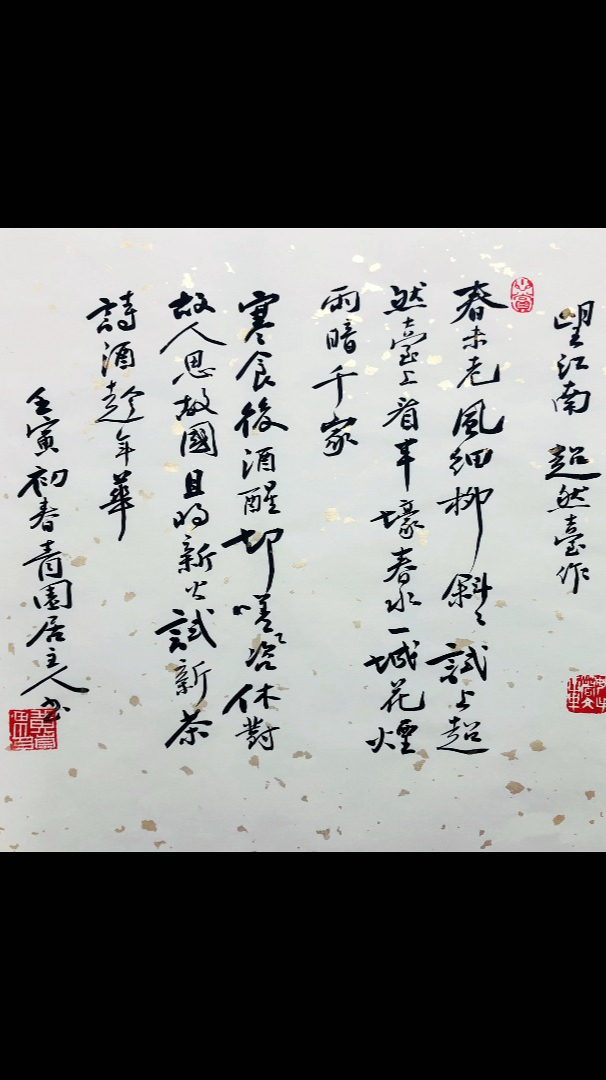 望江南 超然臺作
春未老風細柳斜々試上超
然臺上看半壕春水一城花煙
雨暗千家
寒食後酒醒却嗟咨休對
故人思故國且將新火試新茶
詩酒趁年華
壬寅初春青園居主人書